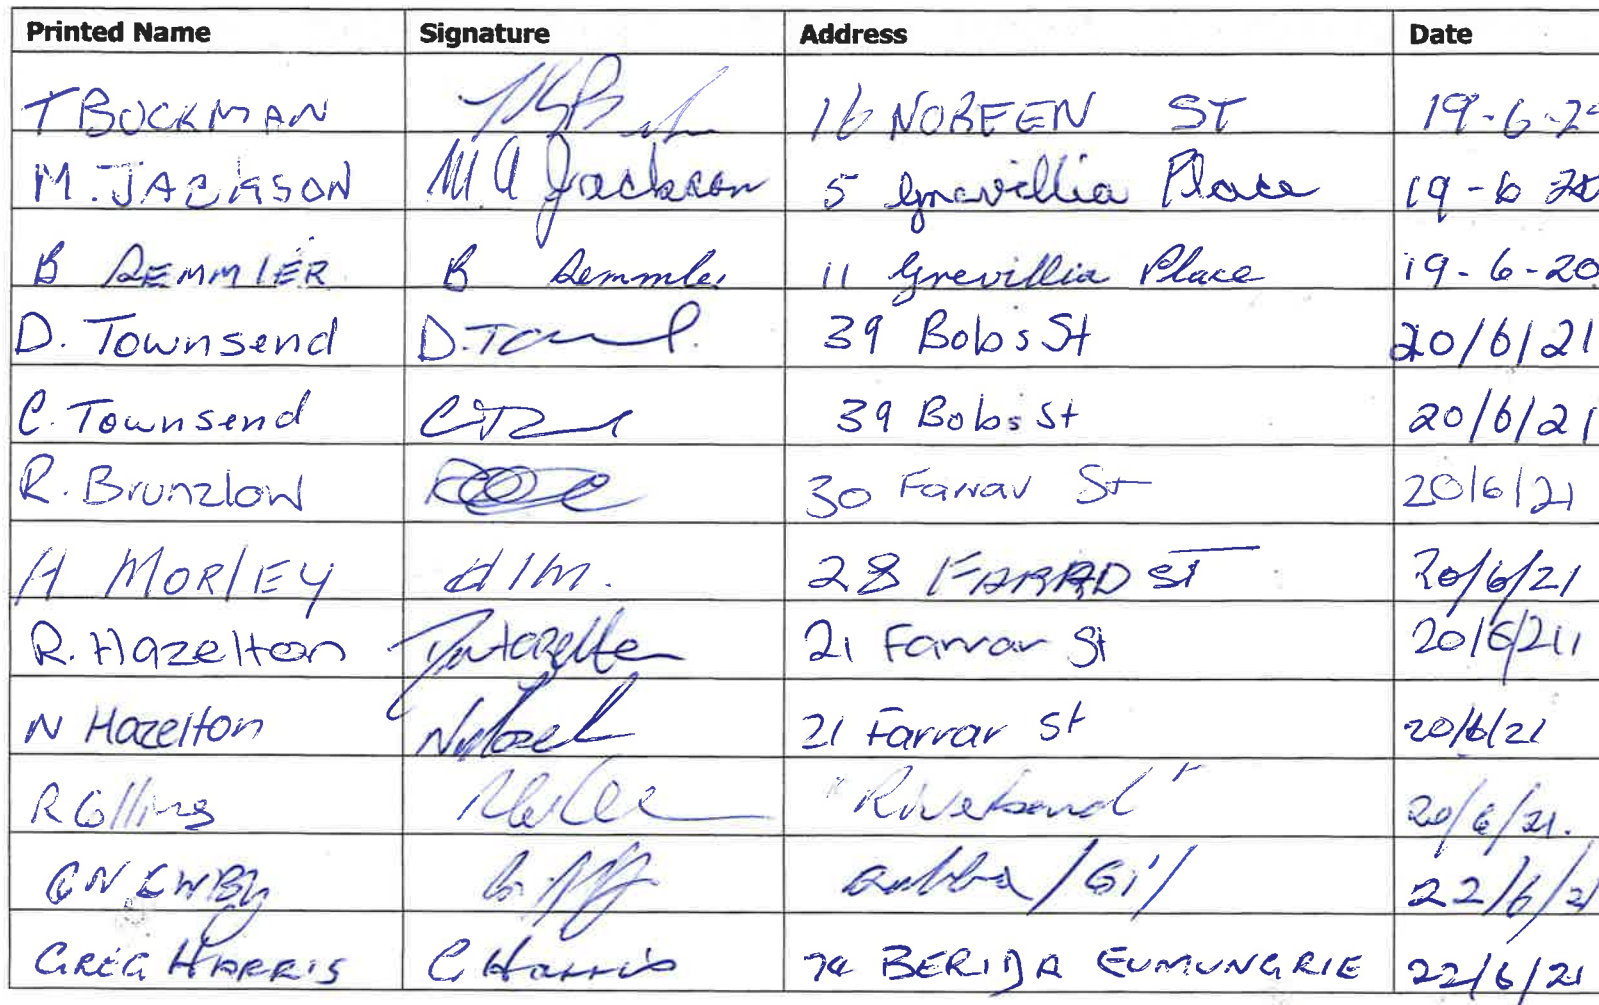 Printed Name Signature Address Date
T BUCKMAN 16 NOREEN ST 19-6-20
M. JACKSON M A Jackson 5 Grevillia Place 19-6 20
B REMMLER B Remmler 11 Grevillia Place 19-6-20
D. Townsend D. T 39 Bobs St 20/6/21
C. Townsend 39 Bobs St 20/6/21
R. Brunzlow 30 Farrar St 20/6/21
H MORLEY 28 FARRAD ST 20/6/21
R. Hazelton Hazelton 21 Farrar St 20/6/21
N Hazelton 21 Farrar St 20/6/21
R Collins "Riverbend" 20/6/21.
C NEWBY 22/6/21
GREG HARRIS G Harris BERIDA EUMUNGRIE 22/6/21